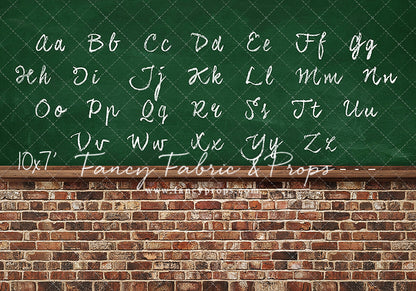 Aa Bb Cc Dd Ee Ff Gg
Hh Ii Jj Kk Ll Mm Nn
Oo Pp Qq Rr Ss Tt Uu
Vv Ww Xx Yy Zz
10x7'
Fancy Fabric & Props
www.fancyprops.com